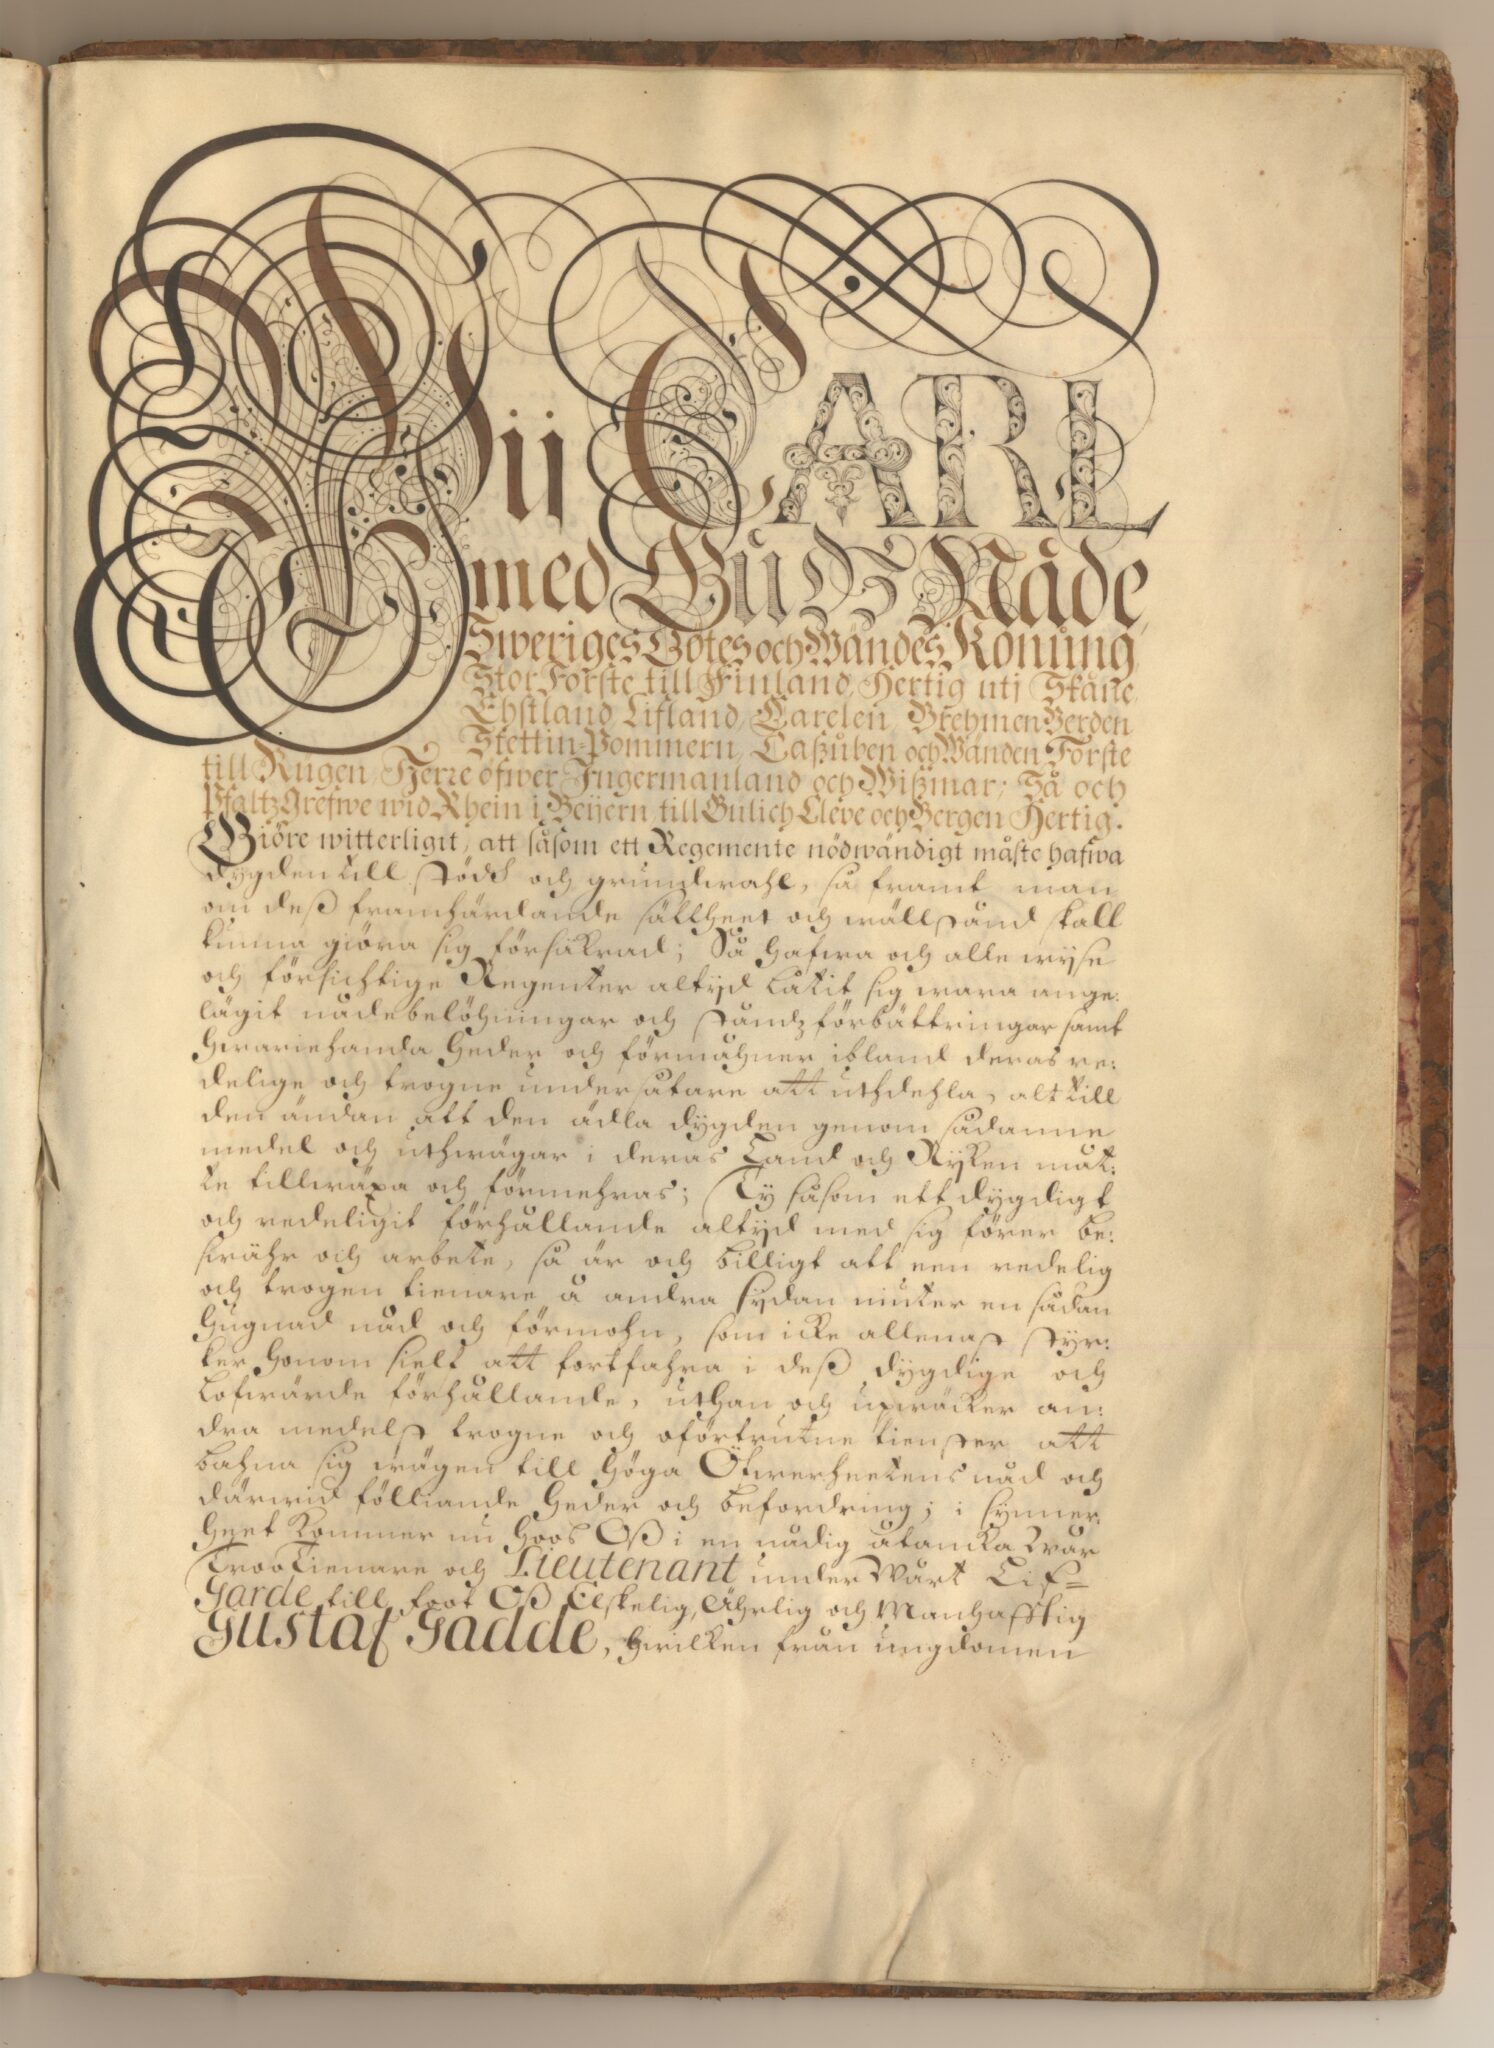 Wii CARL
med Gudz Nåde,
Sweriges Götes och Wändes Konung,
Stor Förste till Finland, Hertig uti Skåne,
Ehstland, Lifland, Carelen, Brehmen Verden
Stettin-Pommern, Caßuben och Wänden, Förste
till Rügen, Herre öfwer Ingermanland och Wißmar; Så och
Pfaltz Grefwe wid Rhein i Beijern, till Gülich Cleve och Bergen Hertig.
Giöre witterligit, att såsom ett Regemente nödwändigt måste hafwa
dygden till stödh och grundwahl, så framt man
om deß framhärdande sällheet och wällstånd skall
kunna giöra sig försäkrad; Så hafwa och alle wyse
och försichtige Regenter altijd låtit sig wara ange:
lägit nådebelöhningar och ståndz förbättringar samt
hwariehanda heder och förmåhner ibland deras re:
delige och trogne undersåtare att uthdehla, alt till
den ändan att den ädla dygden genom sådanne
medel och uthwägar i deras Land och Ryken måt:
te tillwäxa och förmehras; Ty såsom ett dygdigt
och redeligit förhållande altijd med sig förer be:
swähr och arbete, så är och billigt att een redelig
och trogen tienare å andra sydan niuter en sådan
hugnad nåd och förmohn, som icke allenast styr:
ker honom sielf att fortfahra i deß dygdige och
lofwärde förhållande, uthan och upwäcker an:
dra medelst trogne och oförtrutne tienster att
bahna sig wägen till höga Öfwerheetens nåd och
därwid fölliande heder och befordring; i synner:
heet kommer nu hoos Oß i en nådig åtancka Wår
Troo Tienare och Lieutenant under Wårt Lif=
Garde till foot Oß Elskelig, Ährlig och Manhafftig
Gustaf Gadde, hwilken från ungdomen